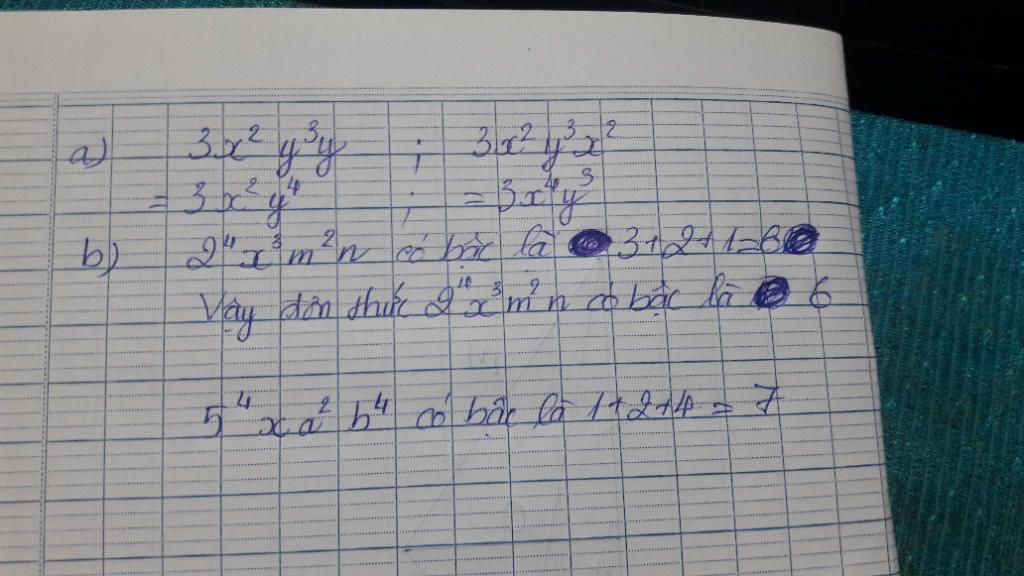 a) 3x² y³y ; 3x² y³x²
= 3x²y⁴ ; = 3x⁴y³
b) 2⁴x³m²n có bậc là 3+2+1=6
Vậy đơn thức 2⁴x³m²n có bậc là 6
5⁴xa²b⁴ có bậc là 1+2+4 = 7